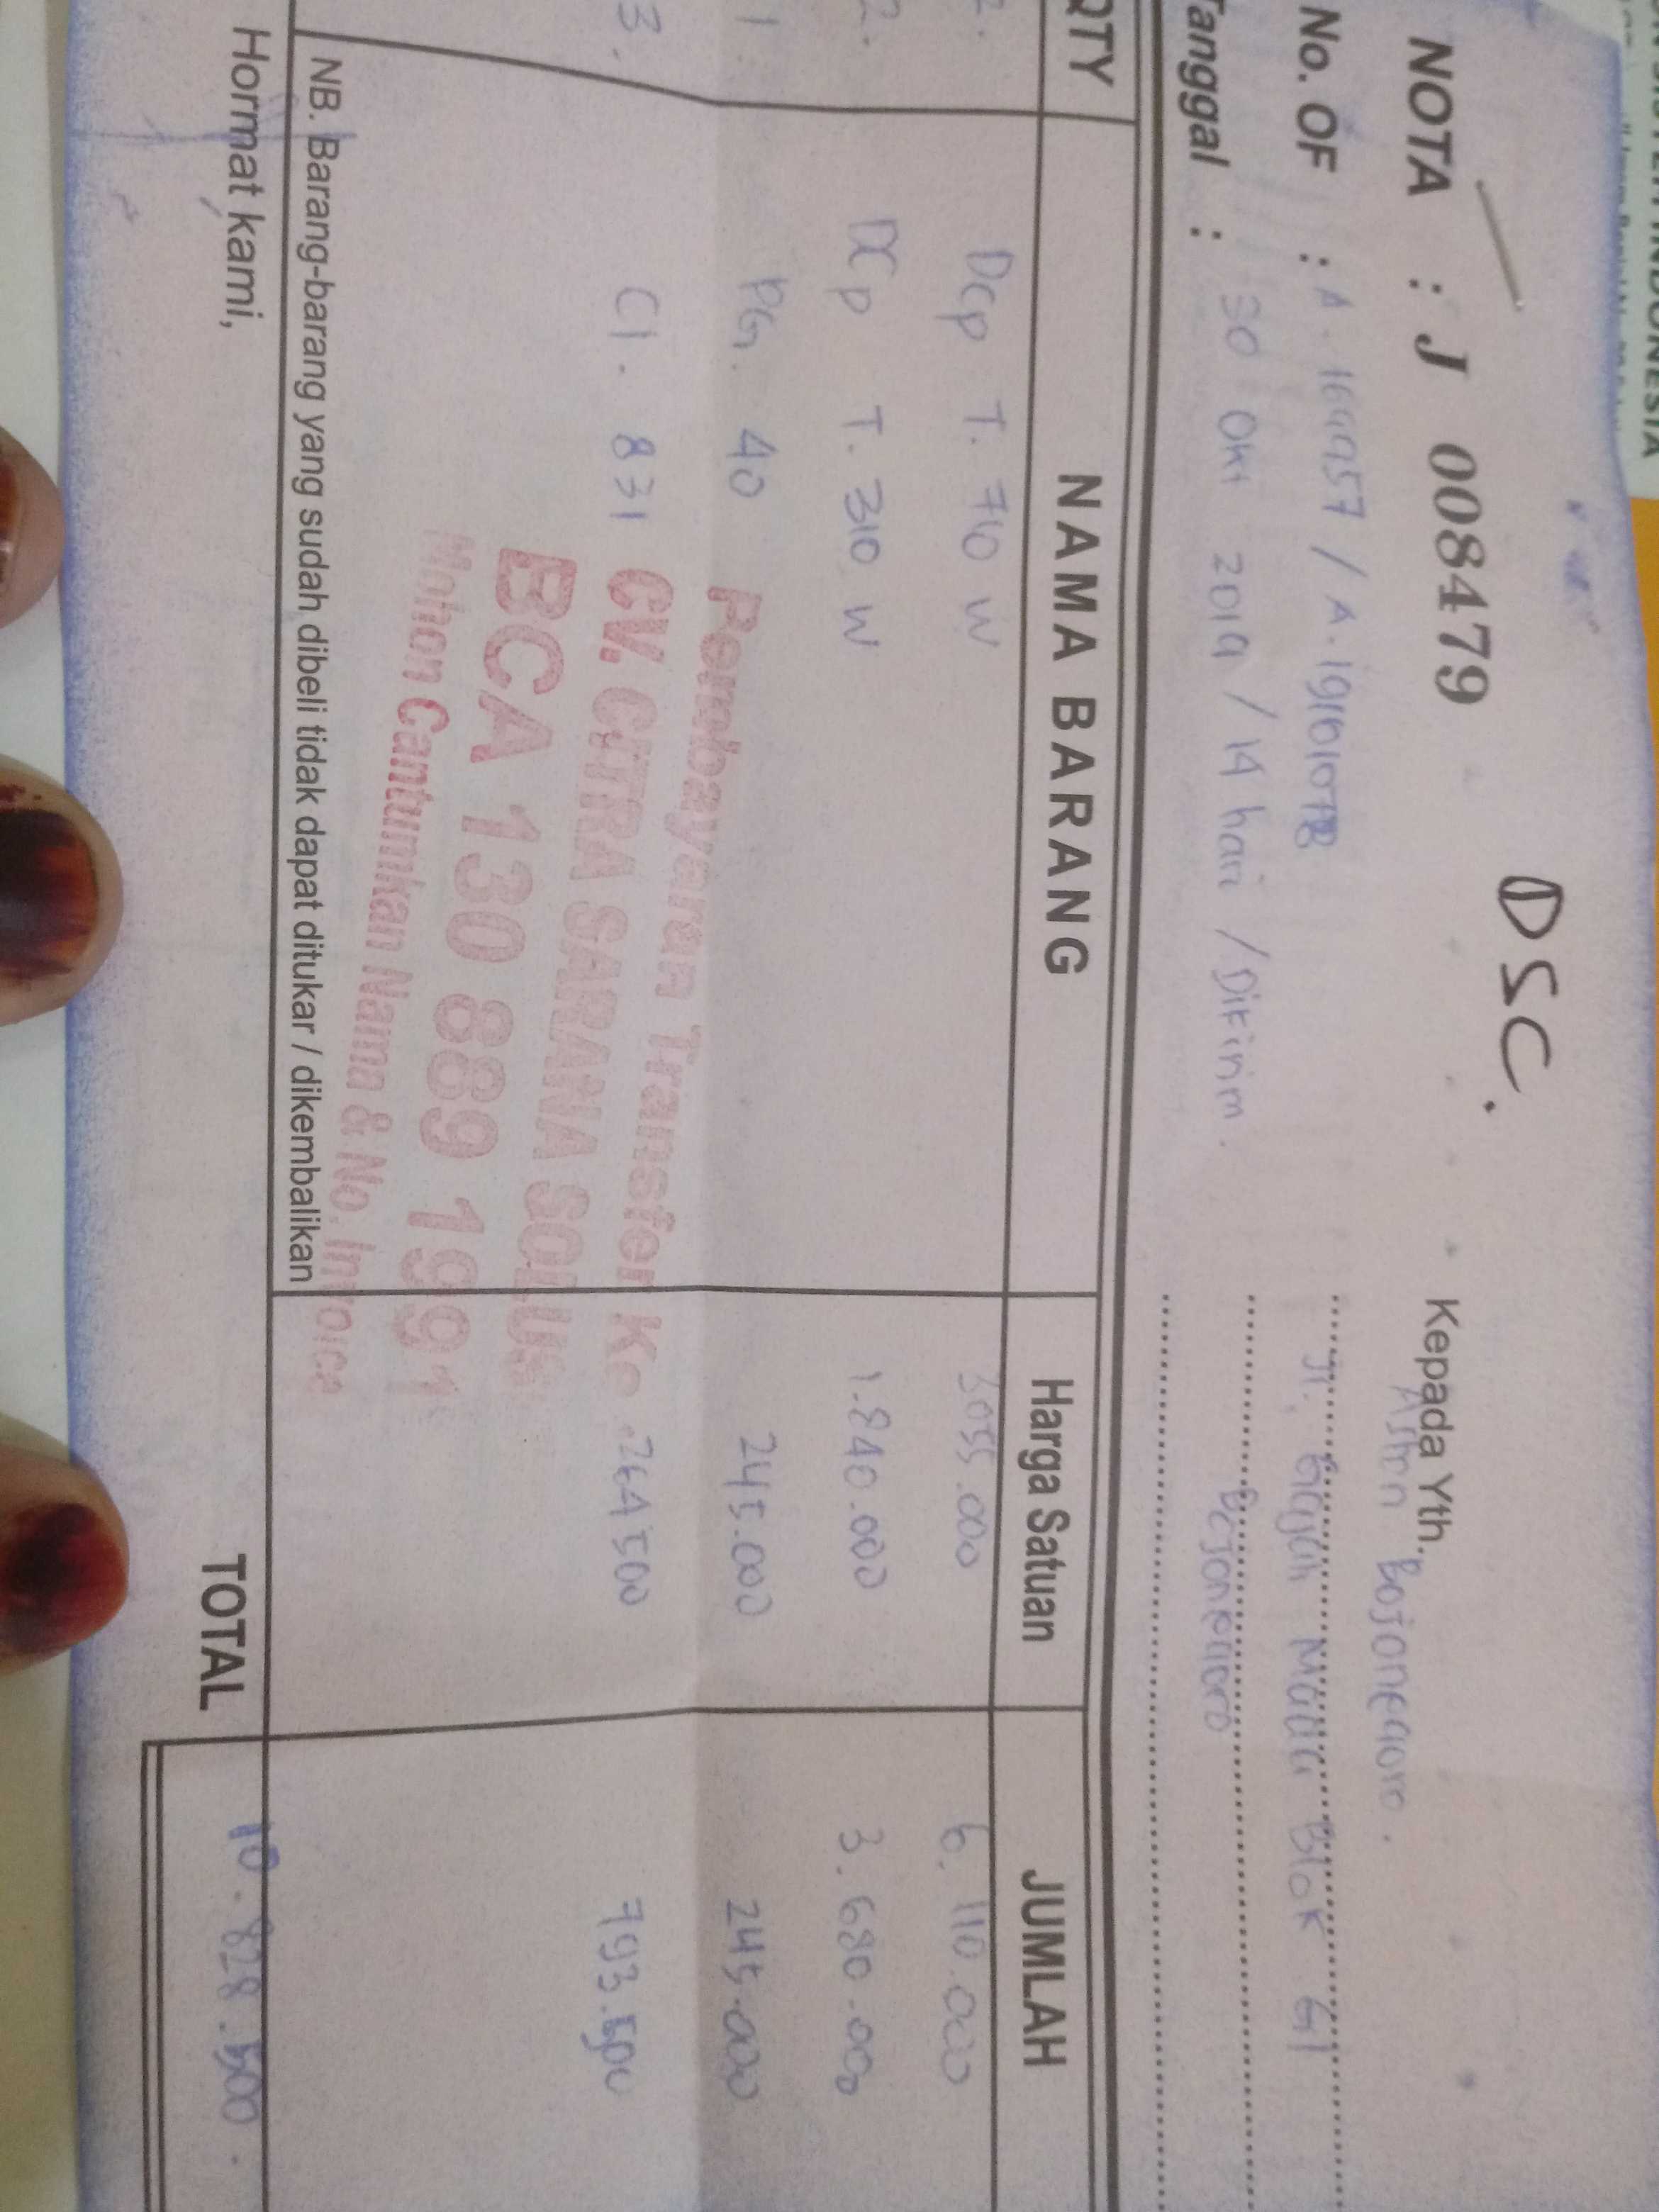 DSC.
NOTA : J 008479
No. OF : A.
/ A.
Tanggal : 30 Okt 2019 / 14 hari / Dikirim.
Kepada Yth.
Aston Bojonegoro.
Jl. Gajah Mada Blok G1
Bojonegoro
QTY NAMA BARANG Harga Satuan JUMLAH
2. DCp T. 710 W 3.055.000 6.110.000
2. DCp T. 310 W 1.840.000 3.680.000
1 PG. 40 245.000 245.000
3. CL. 831 264500 793.500
Pembayaran Transfer Ke
CV. CITRA SARANA SOLUS
BCA 130 889 1991
Mohon Cantumkan Nama & No. Invoice
NB. Barang-barang yang sudah dibeli tidak dapat ditukar / dikembalikan
Hormat kami,
TOTAL 10.828.500.